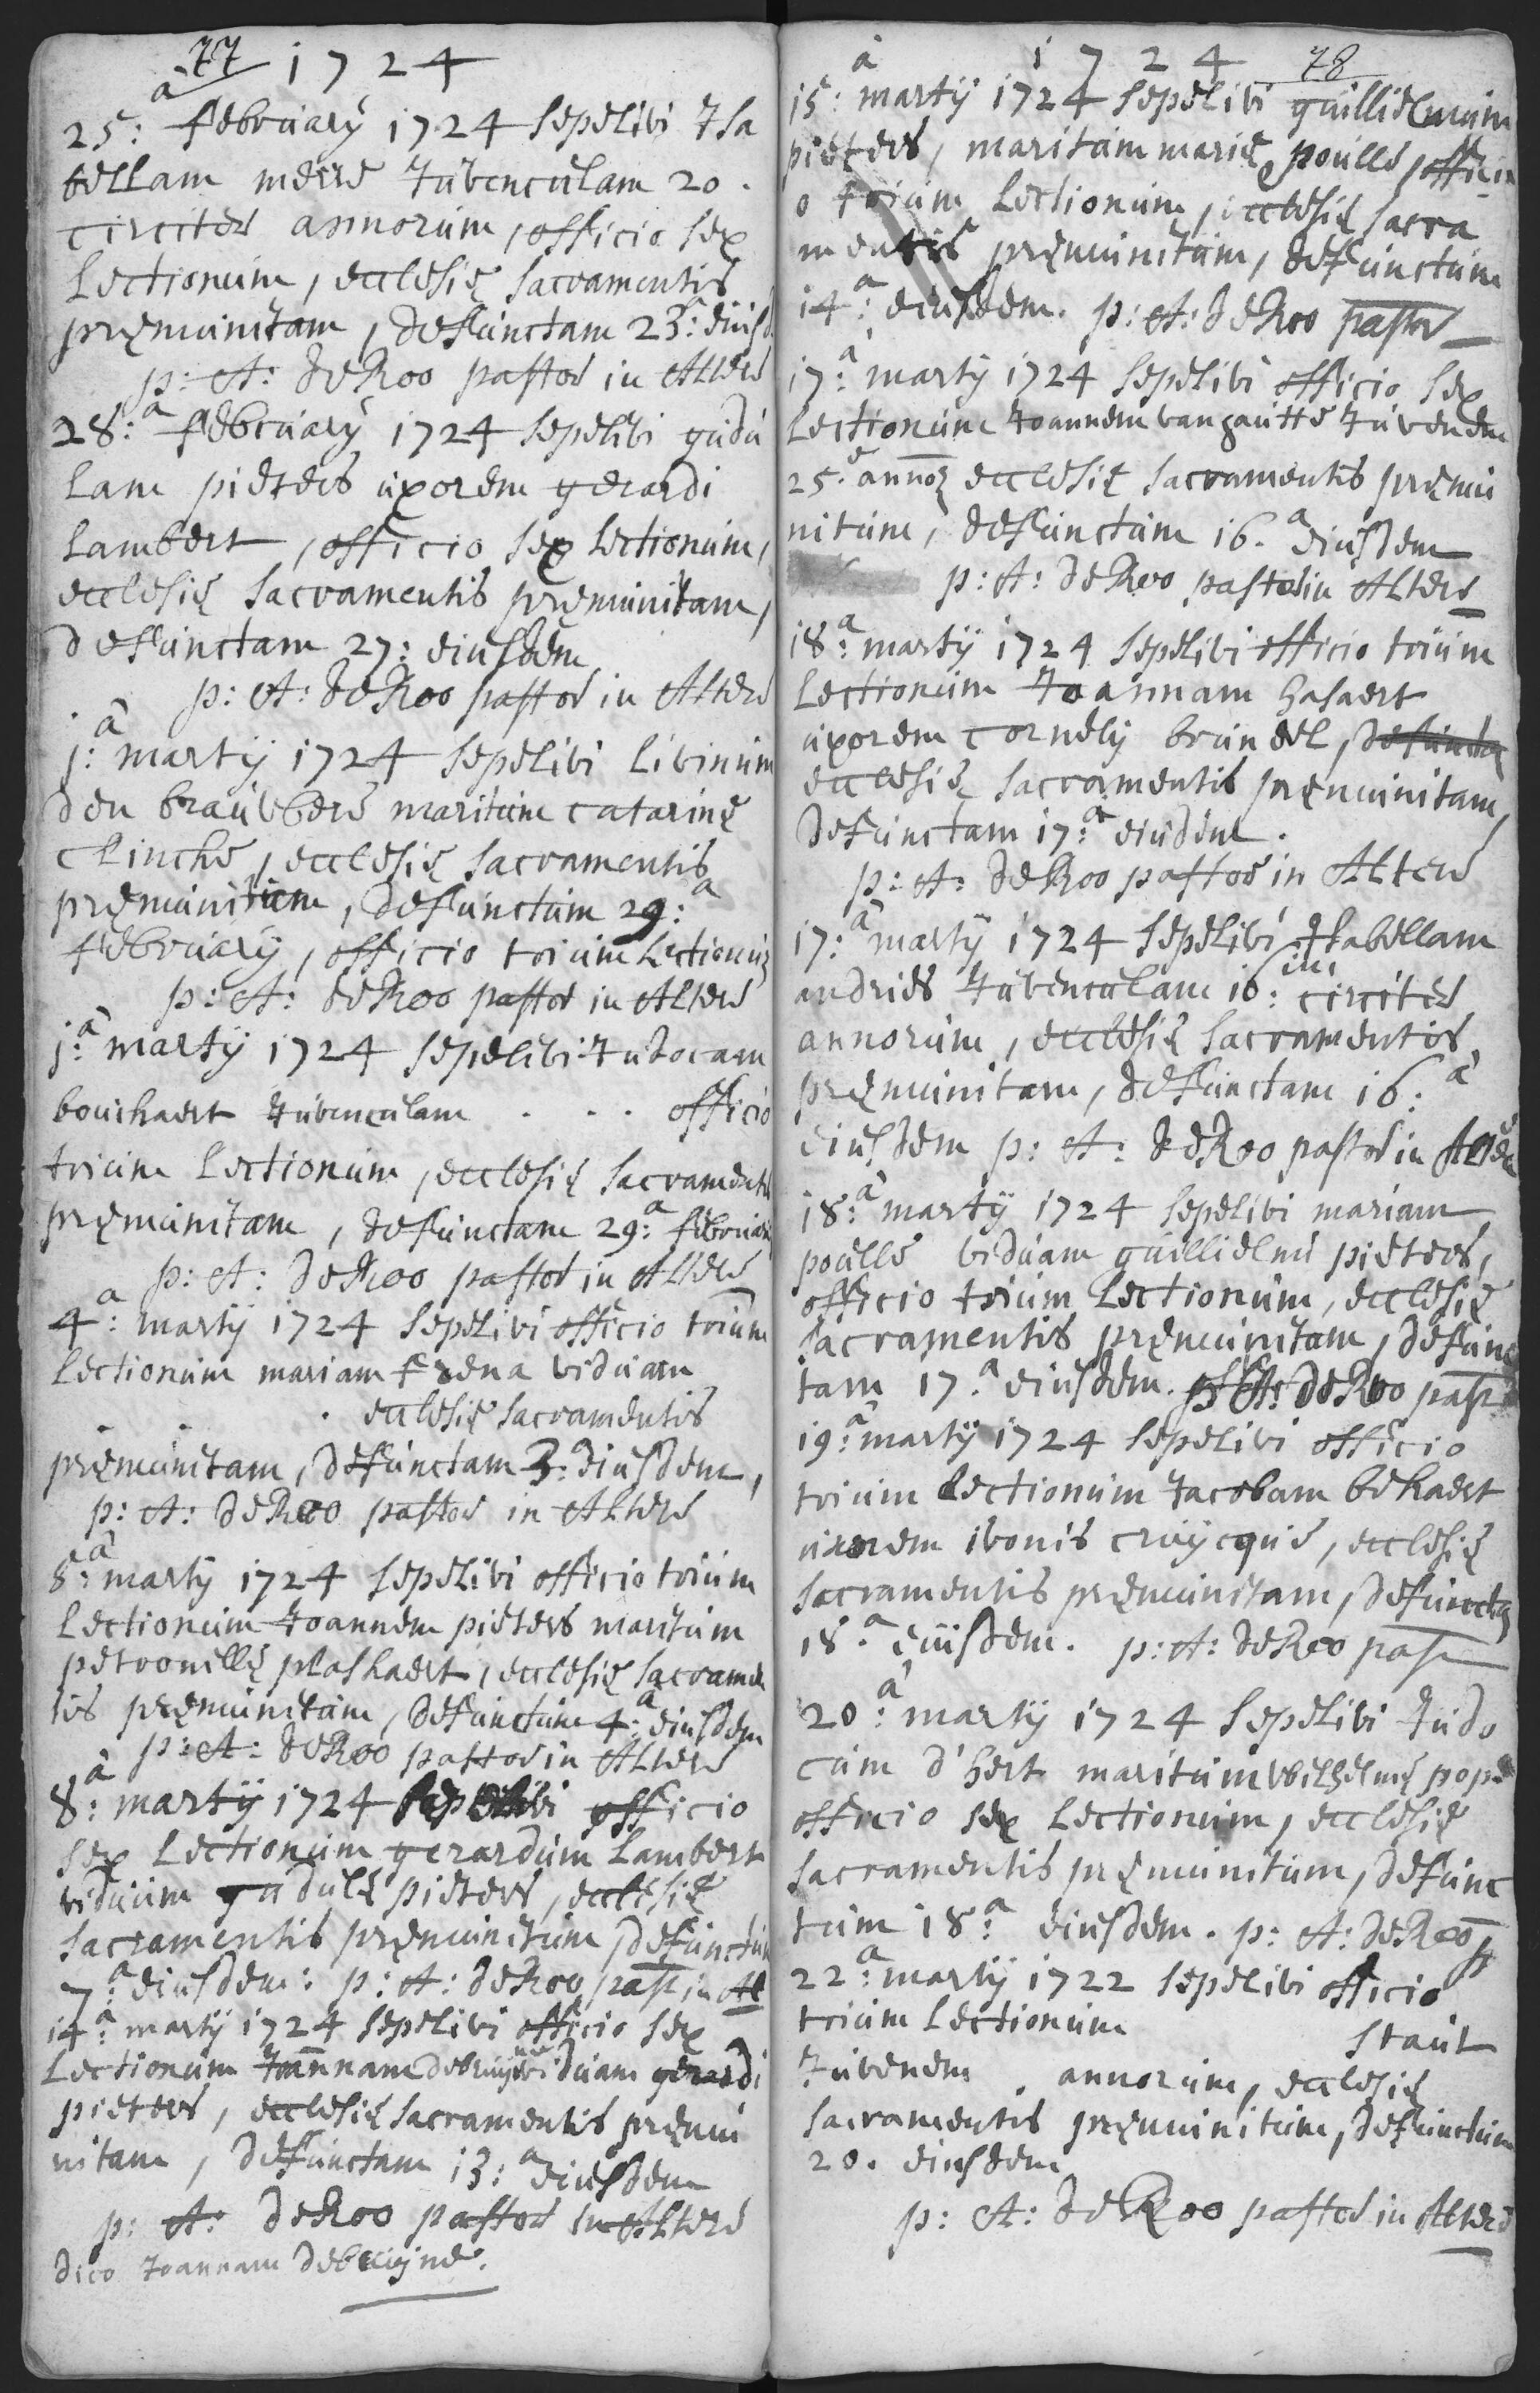 77 1724
25:a februarÿ 1724 sepelivi Isa
bellam meire Iuvenculam 20.
circiter annorum, officio sex
Lectionum, ecclesię sacramentis
pręmunitam, defunctam 23:a eiusd
p: A: DeRoo pastor in Altere
28:a februarÿ 1724 sepelivi gudu
lam pieters uxorem gerardi
Lambert, officio sex Lectionum,
ecclesię sacramentis pręmunitam,
defunctam 27: eiusdem
p: A: DeRoo pastor in Altere
j:a martÿ 1724 sepelivi livinum
den brauwere maritum catarinę
clincke, ecclesię sacramentis
pręmunitum, defunctum 29:a
februarÿ, officio trium Lectionum
p: A: DeRoo pastor in Altere
j:a martÿ 1724 sepelivi Iudocam
bouckaert Iuvenculam . . . officio
trium Lectionum, ecclesię sacramentis
pręmunitam, defunctam 29:a februarÿ
p: A: DeRoo pastor in Altere
4:a martÿ 1724 sepelivi officio trium
Lectionum mariam viduam
. ecclesię sacramentis
pręmunitam, defunctam 3: eiusdem,
p: A: DeRoo pastor in Altere
8:a martÿ 1724 sepelivi officio trium
Lectionum Ioannem pieters maritum
petronillę plashaert, ecclesię sacramen
tis pręmunitum, defunctum 4:a eiusdem
p: A: DeRoo pastor in Altere
8:a martÿ 1724 sepelivi officio
sex Lectionum gerardum Lambert
viduum gudulę pieters, ecclesię
sacramentis pręmunitum, defunctum
7:a eiusdem: p: A: DeRoo past in Al
14:a martÿ 1724 sepelivi officio sex
Lectionum Ioannam debruÿne viduam gerardi
pieters, ecclesię sacramentis pręmu
nitam, defunctam 13:a eiusdem
p: A: DeRoo pastor in Altere
dico Ioannam debruÿne.
1724 78
15:a martÿ 1724 sepelivi guillielmum
pieters, maritum marię poulle, offici
o trium Lectionum, ecclesię sacra
mentis pręmunitum, defunctum
14:a eiusdem. p: A: DeRoo pastor
17:a martÿ 1724 sepelivi officio sex
Lectionum Ioannem vangautte Iuvenem
25. annor ecclesię sacramentis pręmu
nitum, defunctum 16.a eiusdem
p: A: DeRoo pastor in Altere
18:a martÿ 1724 sepelivi officio trium
Lectionum Ioannam hasaert
uxorem cornelÿ bruneel, defuncta
ecclesię sacramentis pręmunitam,
defunctam 17:a eiudem.
p: A: DeRoo pastor in Altere
17:a martÿ 1724 sepelivi Isabellam
andries Iuvenculam 16: circiter
annorum, ecclesię sacramentis
pręmunitam, defunctam 16:a
eiusdem p: A: DeRoo pastor in Altere
18:a martÿ 1724 sepelivi mariam
poulle viduam guillielmi pieters,
officio trium Lectionum, ecclesię
sacramentis pręmunitam, defunc
tam 17.a eiusdem. p: A: DeRoo past
19:a martÿ 1724 sepelivi officio
trium Lectionum Iacobam bekaert
uxorem ivonis cruÿcque, ecclesię
sacramentis pręmunitam, defuncta
18.a eiusdem. p: A: DeRoo past
20:a martÿ 1724 sepelivi Iudo
cum d'hert maritum wilhelmę pope
officio sex Lectionum, ecclesię
sacramentis pręmunitum, defunc
tum 18:a eiusdem. p: A: DeRoo p
22:a martÿ 1722 sepelivi officio
trium Lectionum staut
Iuvenem . annorum, ecclesię
sacramentis pręmunitum, defunctum
20. eiusdem
p: A: DeRoo pastor in Altere